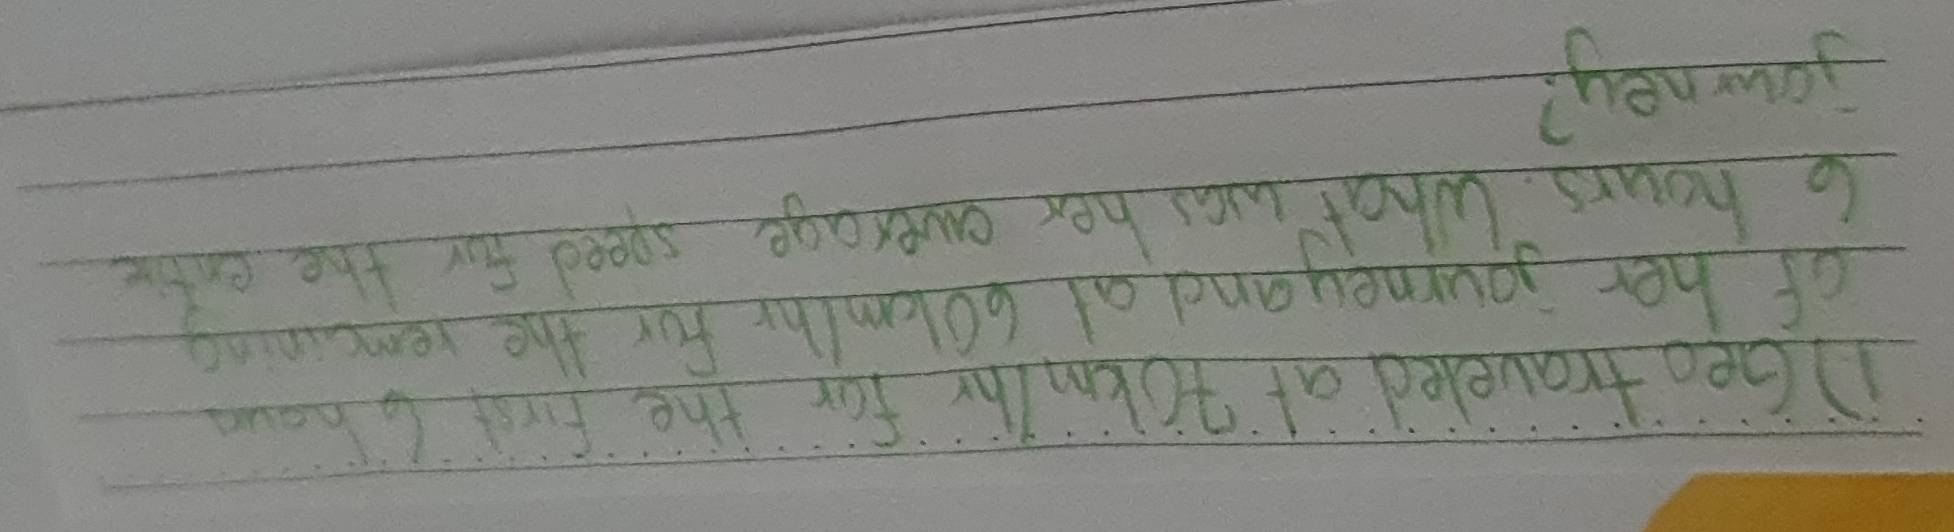 1) Geo traveled at 70km/hr for the first 6 hours
of her journey and at 60km/hr for the remaining
6 hours. What was her average speed for the entire
journey?